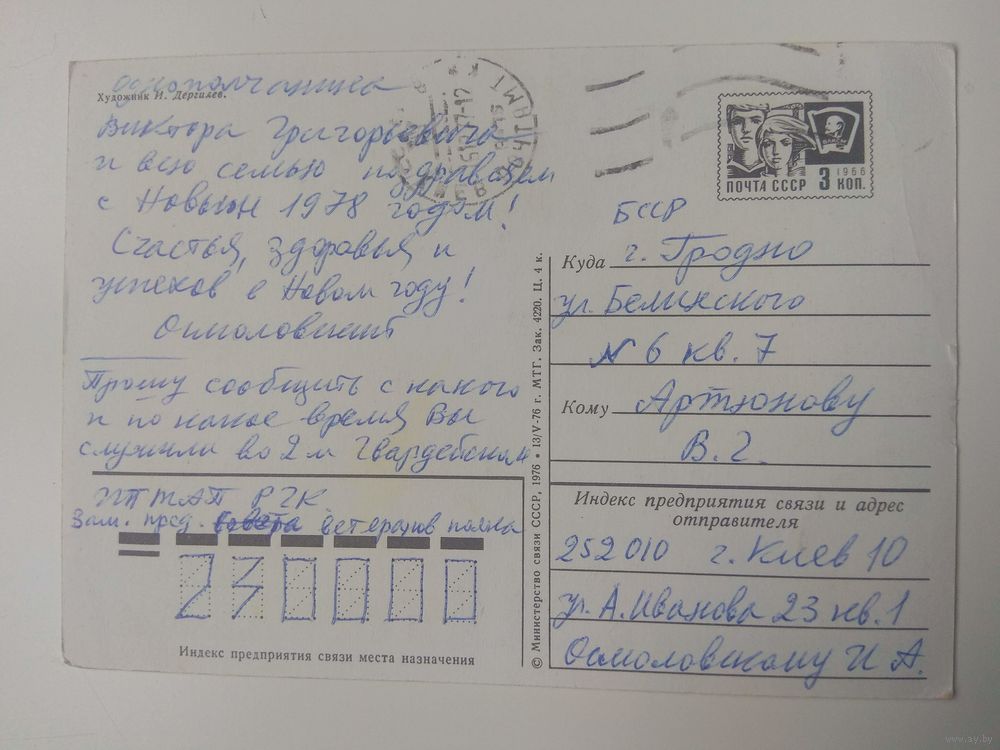 однополчанина
Художник И. Дергилев.
Виктора Григорьевича
и всю семью поздравляем
с Новым 1978 годом!
Счастья, здоровья и
успехов в Новом году!
Осмоловский
Прошу сообщить с какого
и по какое время Вы
служили во 2м Гвардейском
ИПТАП РГК
Зам. пред. совета ветеранов полка
230000
Индекс предприятия связи места назначения
© Министерство связи СССР, 1976 • 13/V-76 г. МТГ. Зак. 4220. Ц. 4 к.
ПОЧТА СССР 3 КОП.
1966
БССР
Куда г. Гродно
ул. Белинского
№ 6 кв. 7
Кому Артюнову
В. Г.
Индекс предприятия связи и адрес
отправителя
252010 г. Киев 10
ул. А. Иванова 23 кв. 1
Осмоловскому И А.
www.ay.by